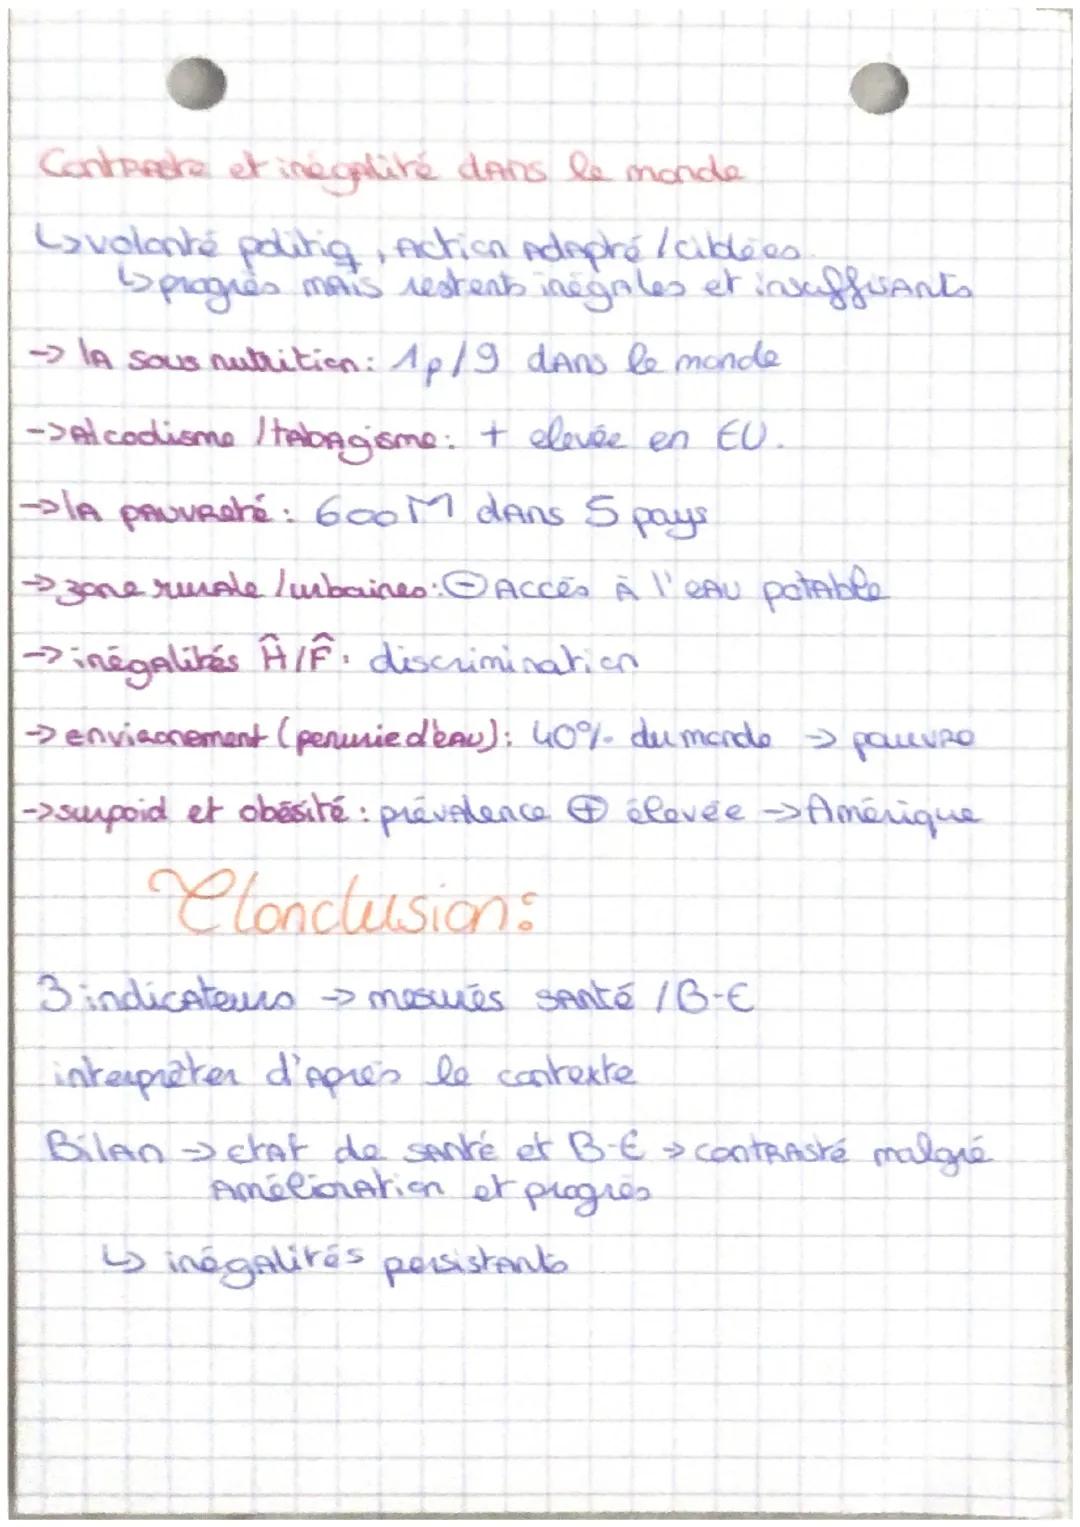 Contraste et inégalité dans le monde
↳ volonté politiq, Action Adapté / ciblées.
↳ progrès mais restent inégales et insuffisants
→ la sous nutrition : 1p/9 dans le monde
→ Alcoolisme / tabagisme : + elevée en EU.
→ la pauvreté : 600M dans 5 pays
→ zone rurale / urbaines : ⊖ Accès à l'eau potable
→ inégalités Ĥ/F̂ : discrimination
→ environement (penurie d'eau) : 40% du monde → pauvre
→ surpoid et obésité : prévalence ⊕ élevée → Amérique
Conclusion :
3 indicateurs → mesurés santé / B-E
interpréter d'après le contexte
Bilan → etat de santé et B-E → contrasté malgré
Amélioration et progrès
↳ inégalités persistants